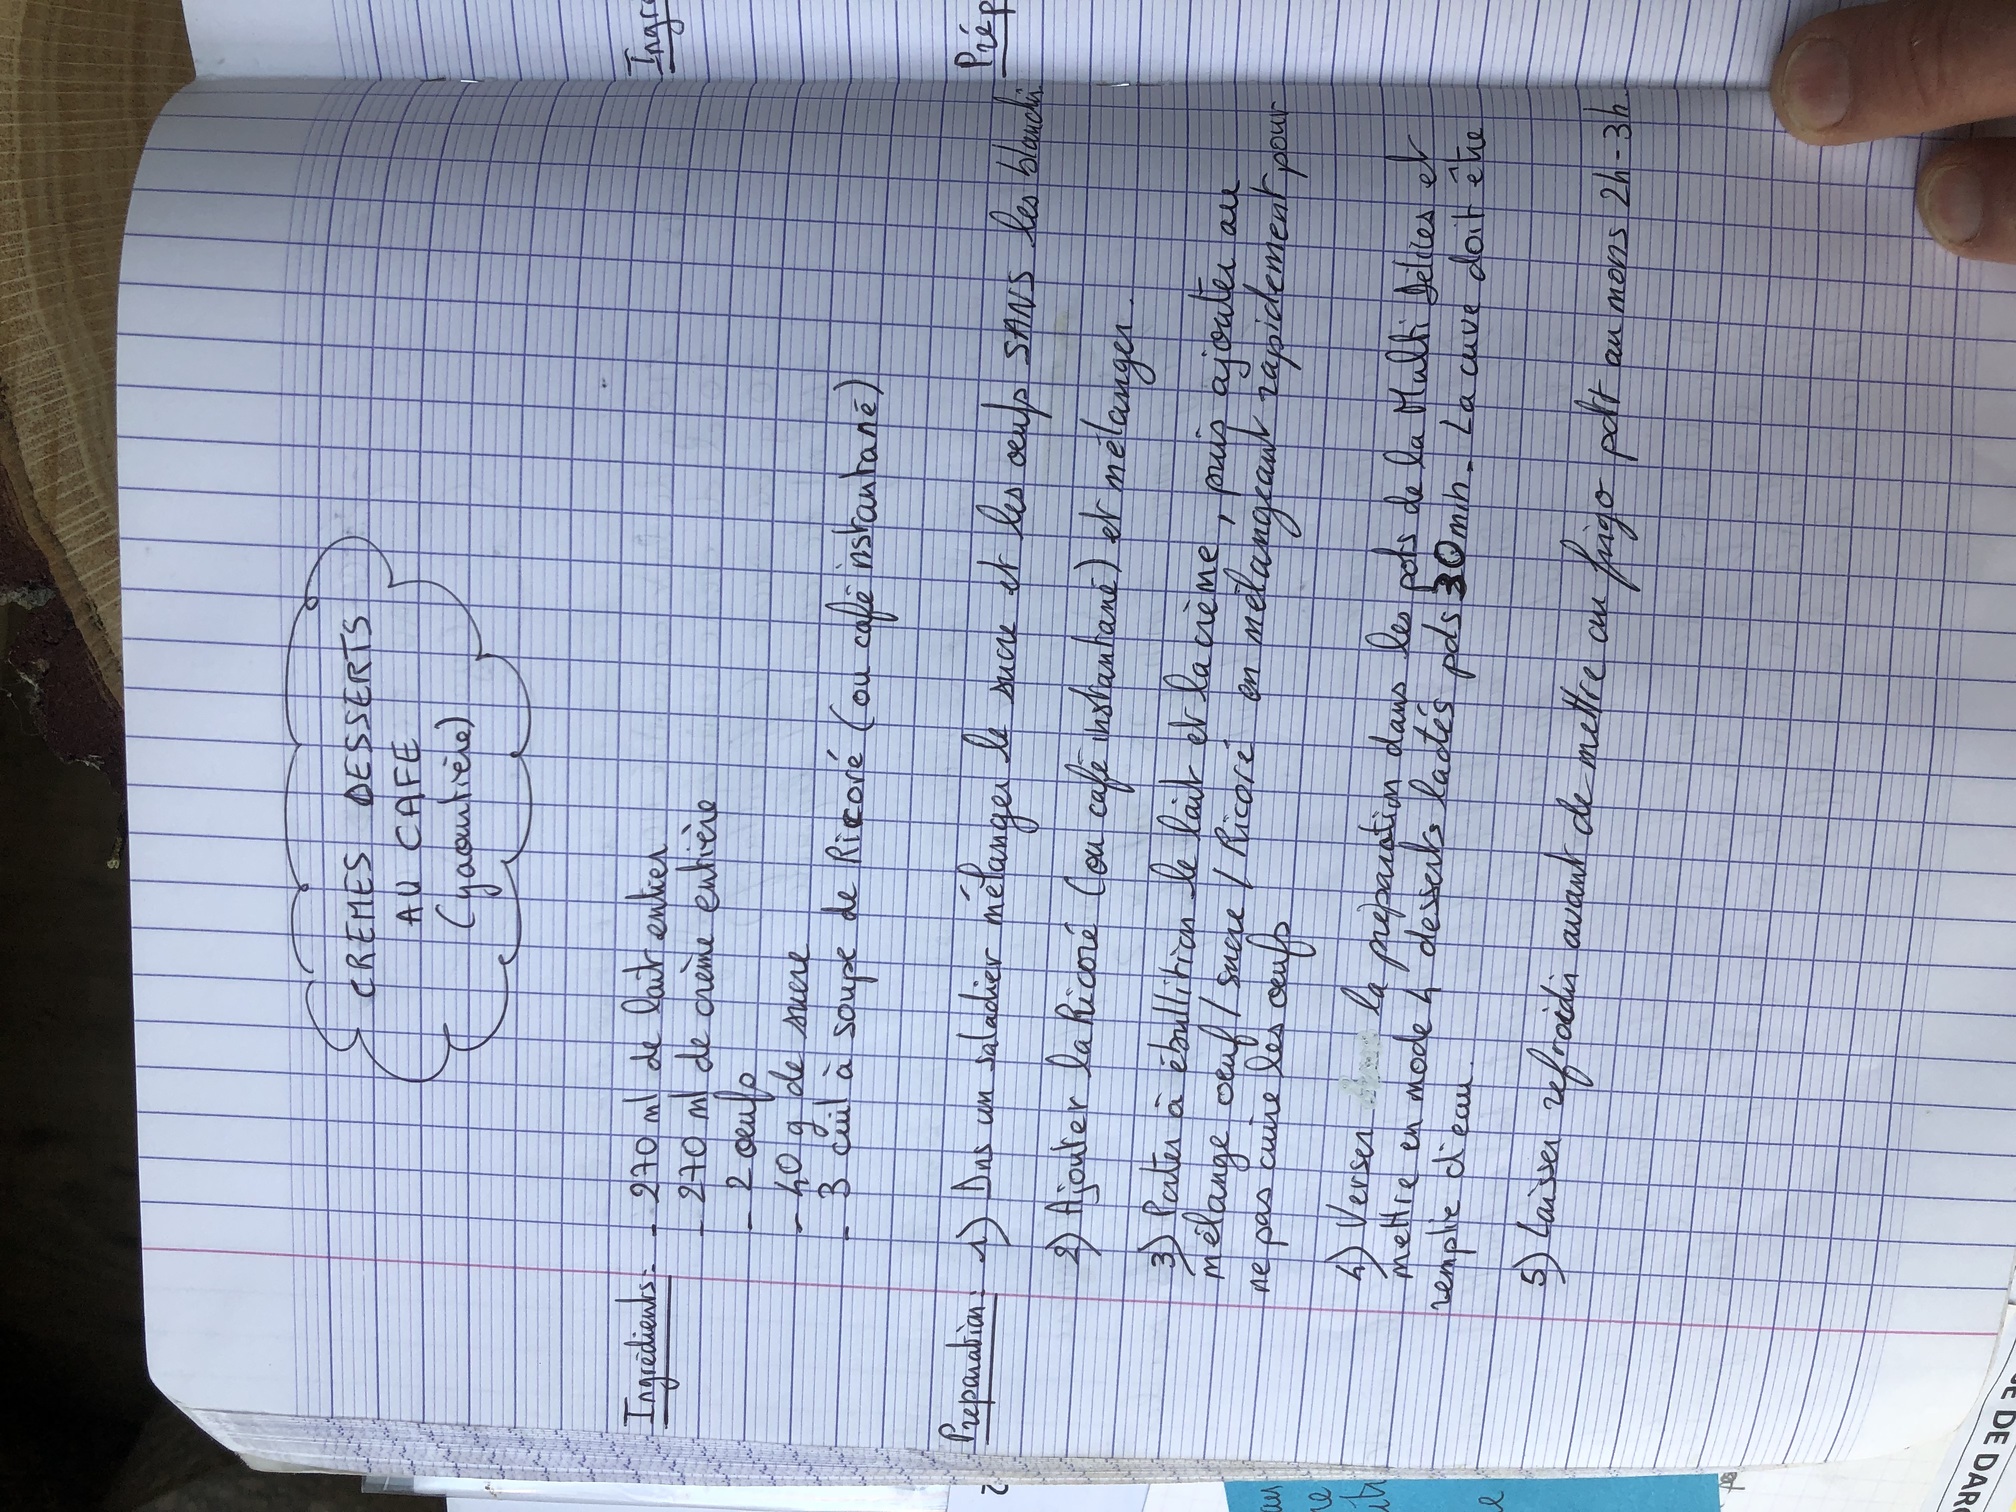 CREMES DESSERTS
AU CAFE
(yaourtière)
Ingrédients: - 270 ml de lait entier
- 270 ml de crème entière
- 2 oeufs
- 40 g de sucre
- 3 cuil à soupe de Ricoré (ou café instantané)
Préparation: 1) Dns un saladier mélanger le sucre et les oeufs SANS les blanchir
2) Ajouter la Ricoré (ou café instantané) et mélanger.
3) Porter à ébullition le lait et la crème, puis ajouter au
mélange oeuf / sucre / Ricoré en mélangeant rapidement pour
ne pas cuire les oeufs
4) Verser la préparation dans les pots de la Multi Délices et
mettre en mode 4 desserts lactés pds 30 min - La cuve doit être
remplie d'eau.
5) Laisser refroidir avant de mettre au frigo pdt au mons 2h-3h
Ingré
Prép
DE DARG